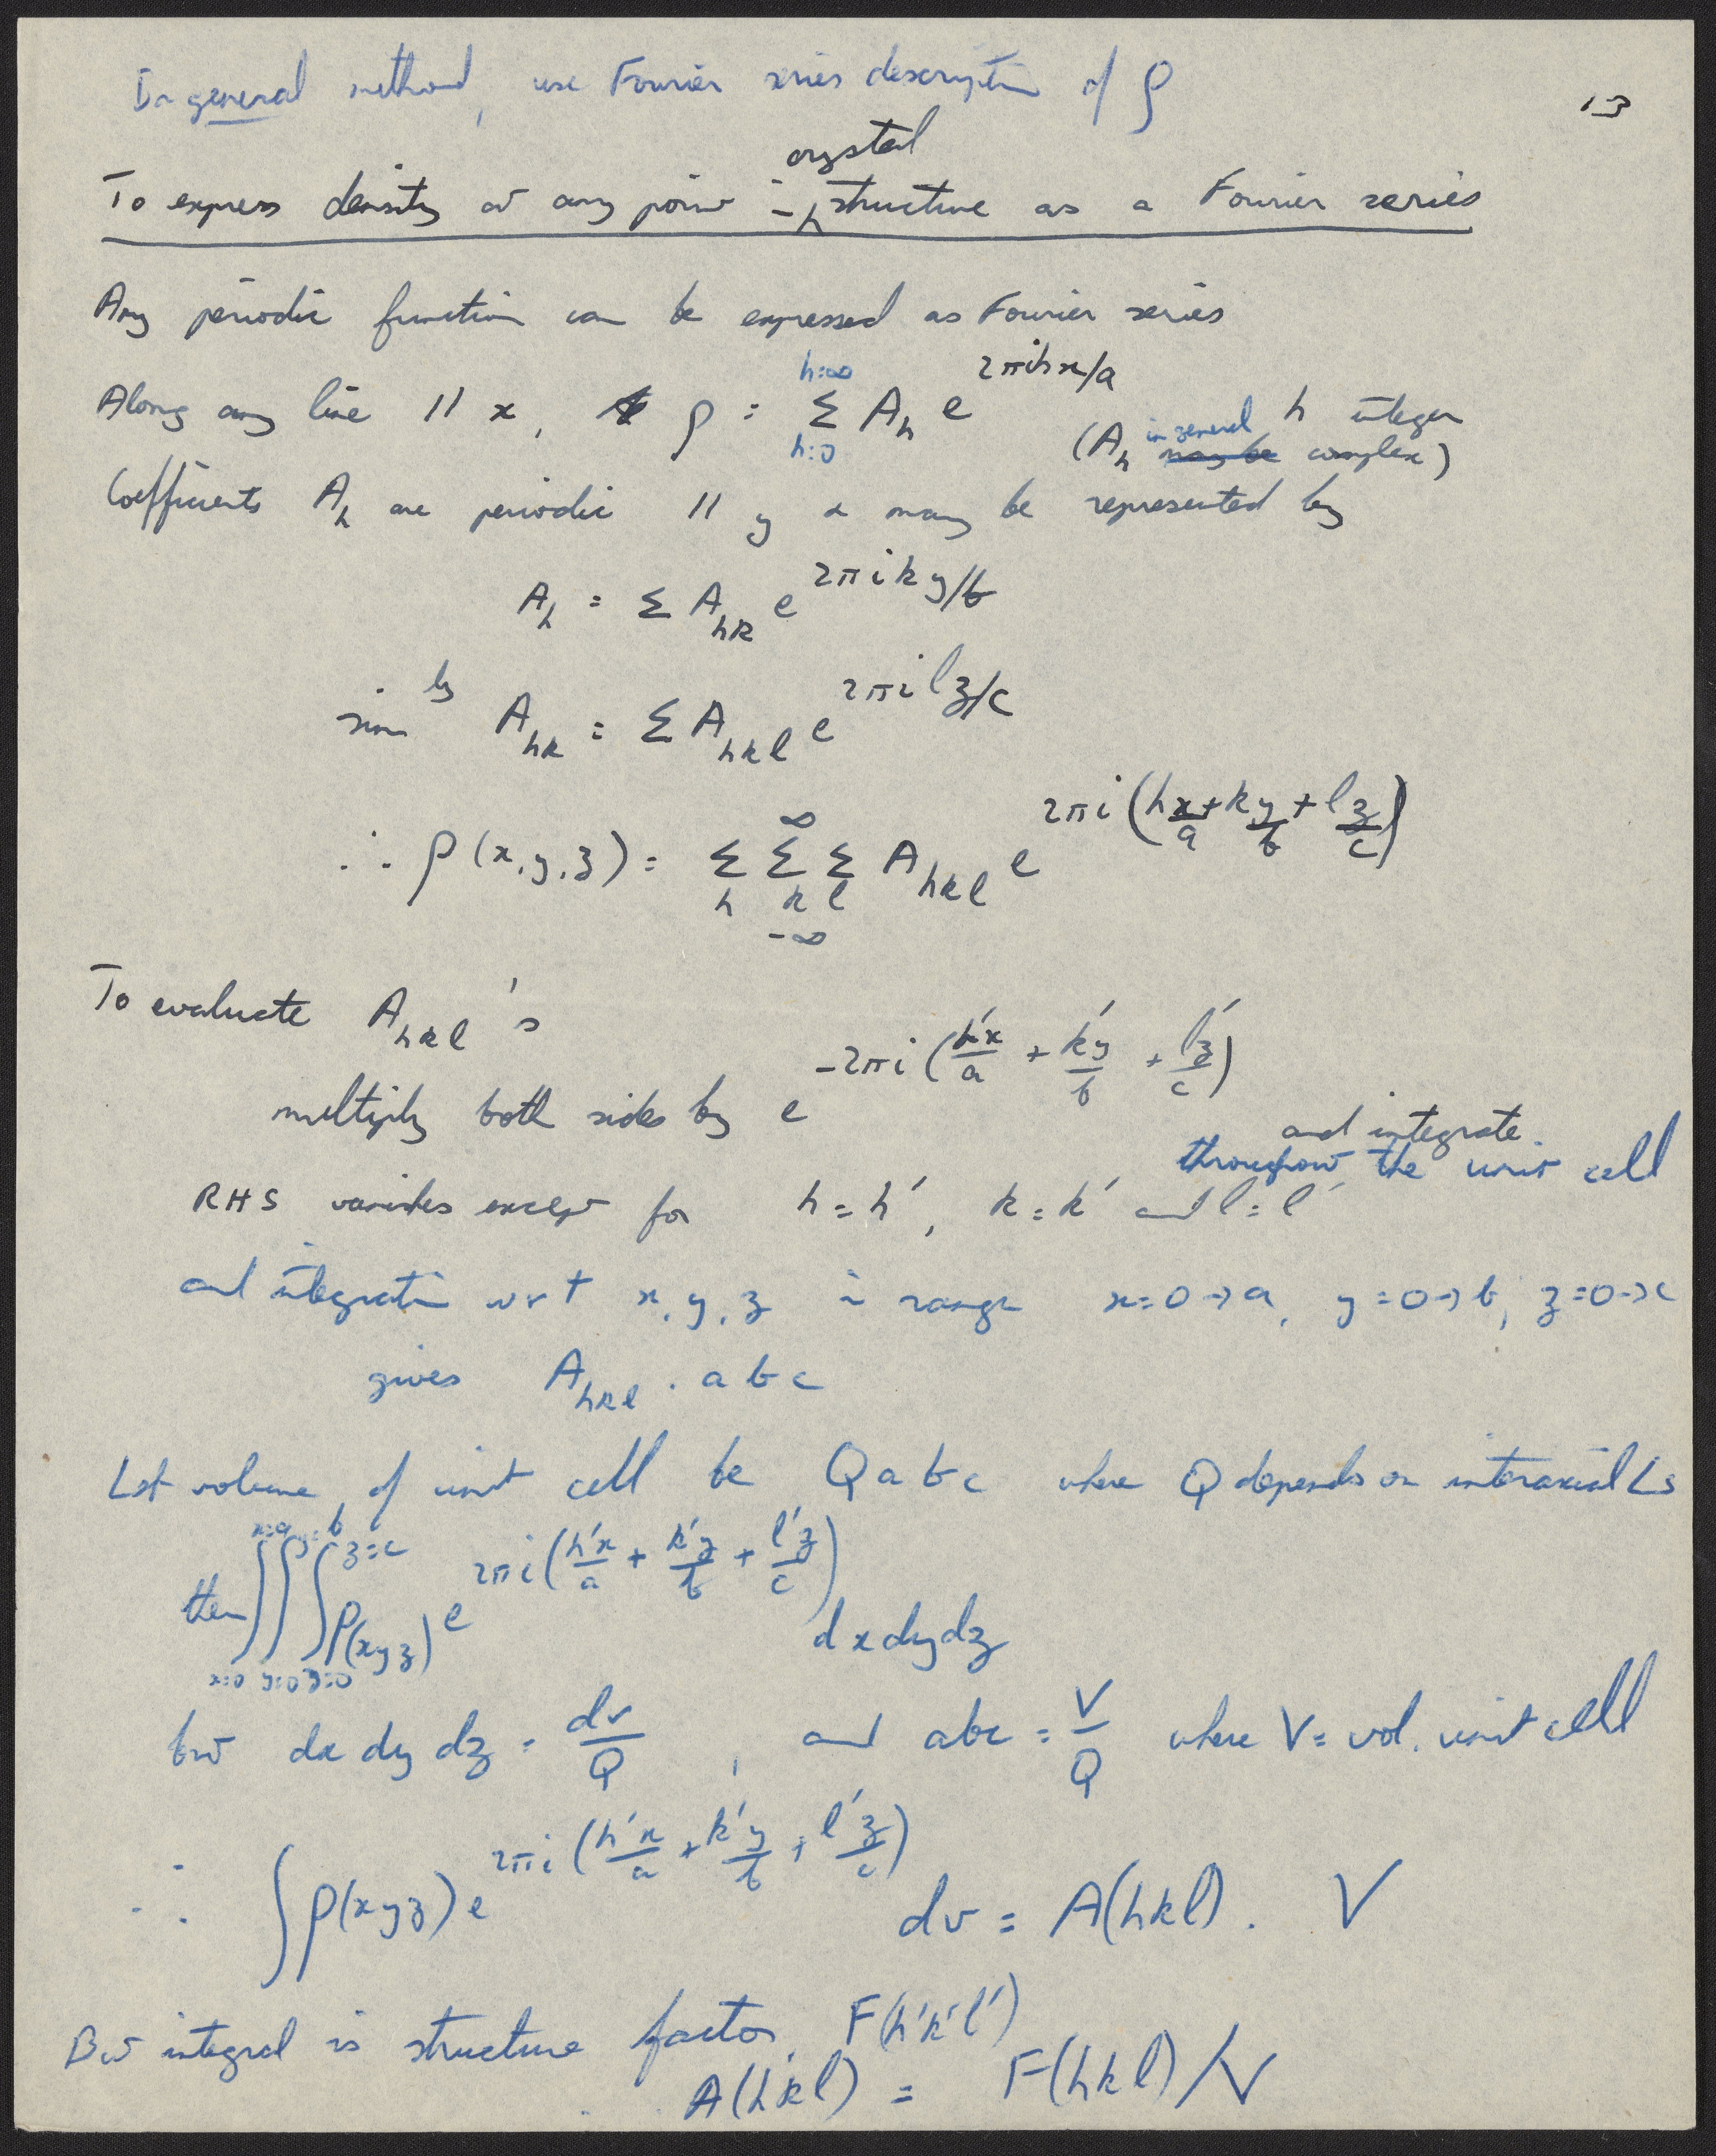 In general method, use Fourier series description of ρ
13
To express density at any point in crystal structure as a Fourier series
Any periodic function can be expressed as Fourier series
Along any line // x, ρ = Σ_{h=0}^{h=∞} A_h e^{2πihx/a} h integer
(A_h in general ~~may be~~ complex)
Coefficients A_h are periodic // y & may be represented by
A_h = Σ A_{hk} e^{2πiky/b}
sim^{ly} A_{hk} = Σ A_{hkl} e^{2πilz/c}
∴ ρ(x,y,z) = Σ_h Σ_k Σ_l _{-∞}^{∞} A_{hkl} e^{2πi(h x/a + k y/b + l z/c)}
To evaluate A_{hkl}'s
multiply both sides by e^{-2πi(h'x/a + k'y/b + l'z/c)} and integrate.
throughout the unit cell
RHS vanishes except for h = h', k = k' and l = l'
and integration wrt x, y, z in range x=0→a, y=0→b, z=0→c
gives A_{hkl} . abc
Let volume of unit cell be Q a b c where Q depends on interaxial ∠s
then ∫_{x=0}^{x=a} ∫_{y=0}^{y=b} ∫_{z=0}^{z=c} ρ(xyz) e^{2πi(h'x/a + k'y/b + l'z/c)} dx dy dz
but dx dy dz = dv/Q, and abc = V/Q where V = vol. unit cell
∴ ∫ρ(xyz) e^{2πi(h'x/a + k'y/b + l'z/c)} dv = A(hkl) . V
But integral is structure factor, F(h'k'l')
A(hkl) = F(hkl)/V